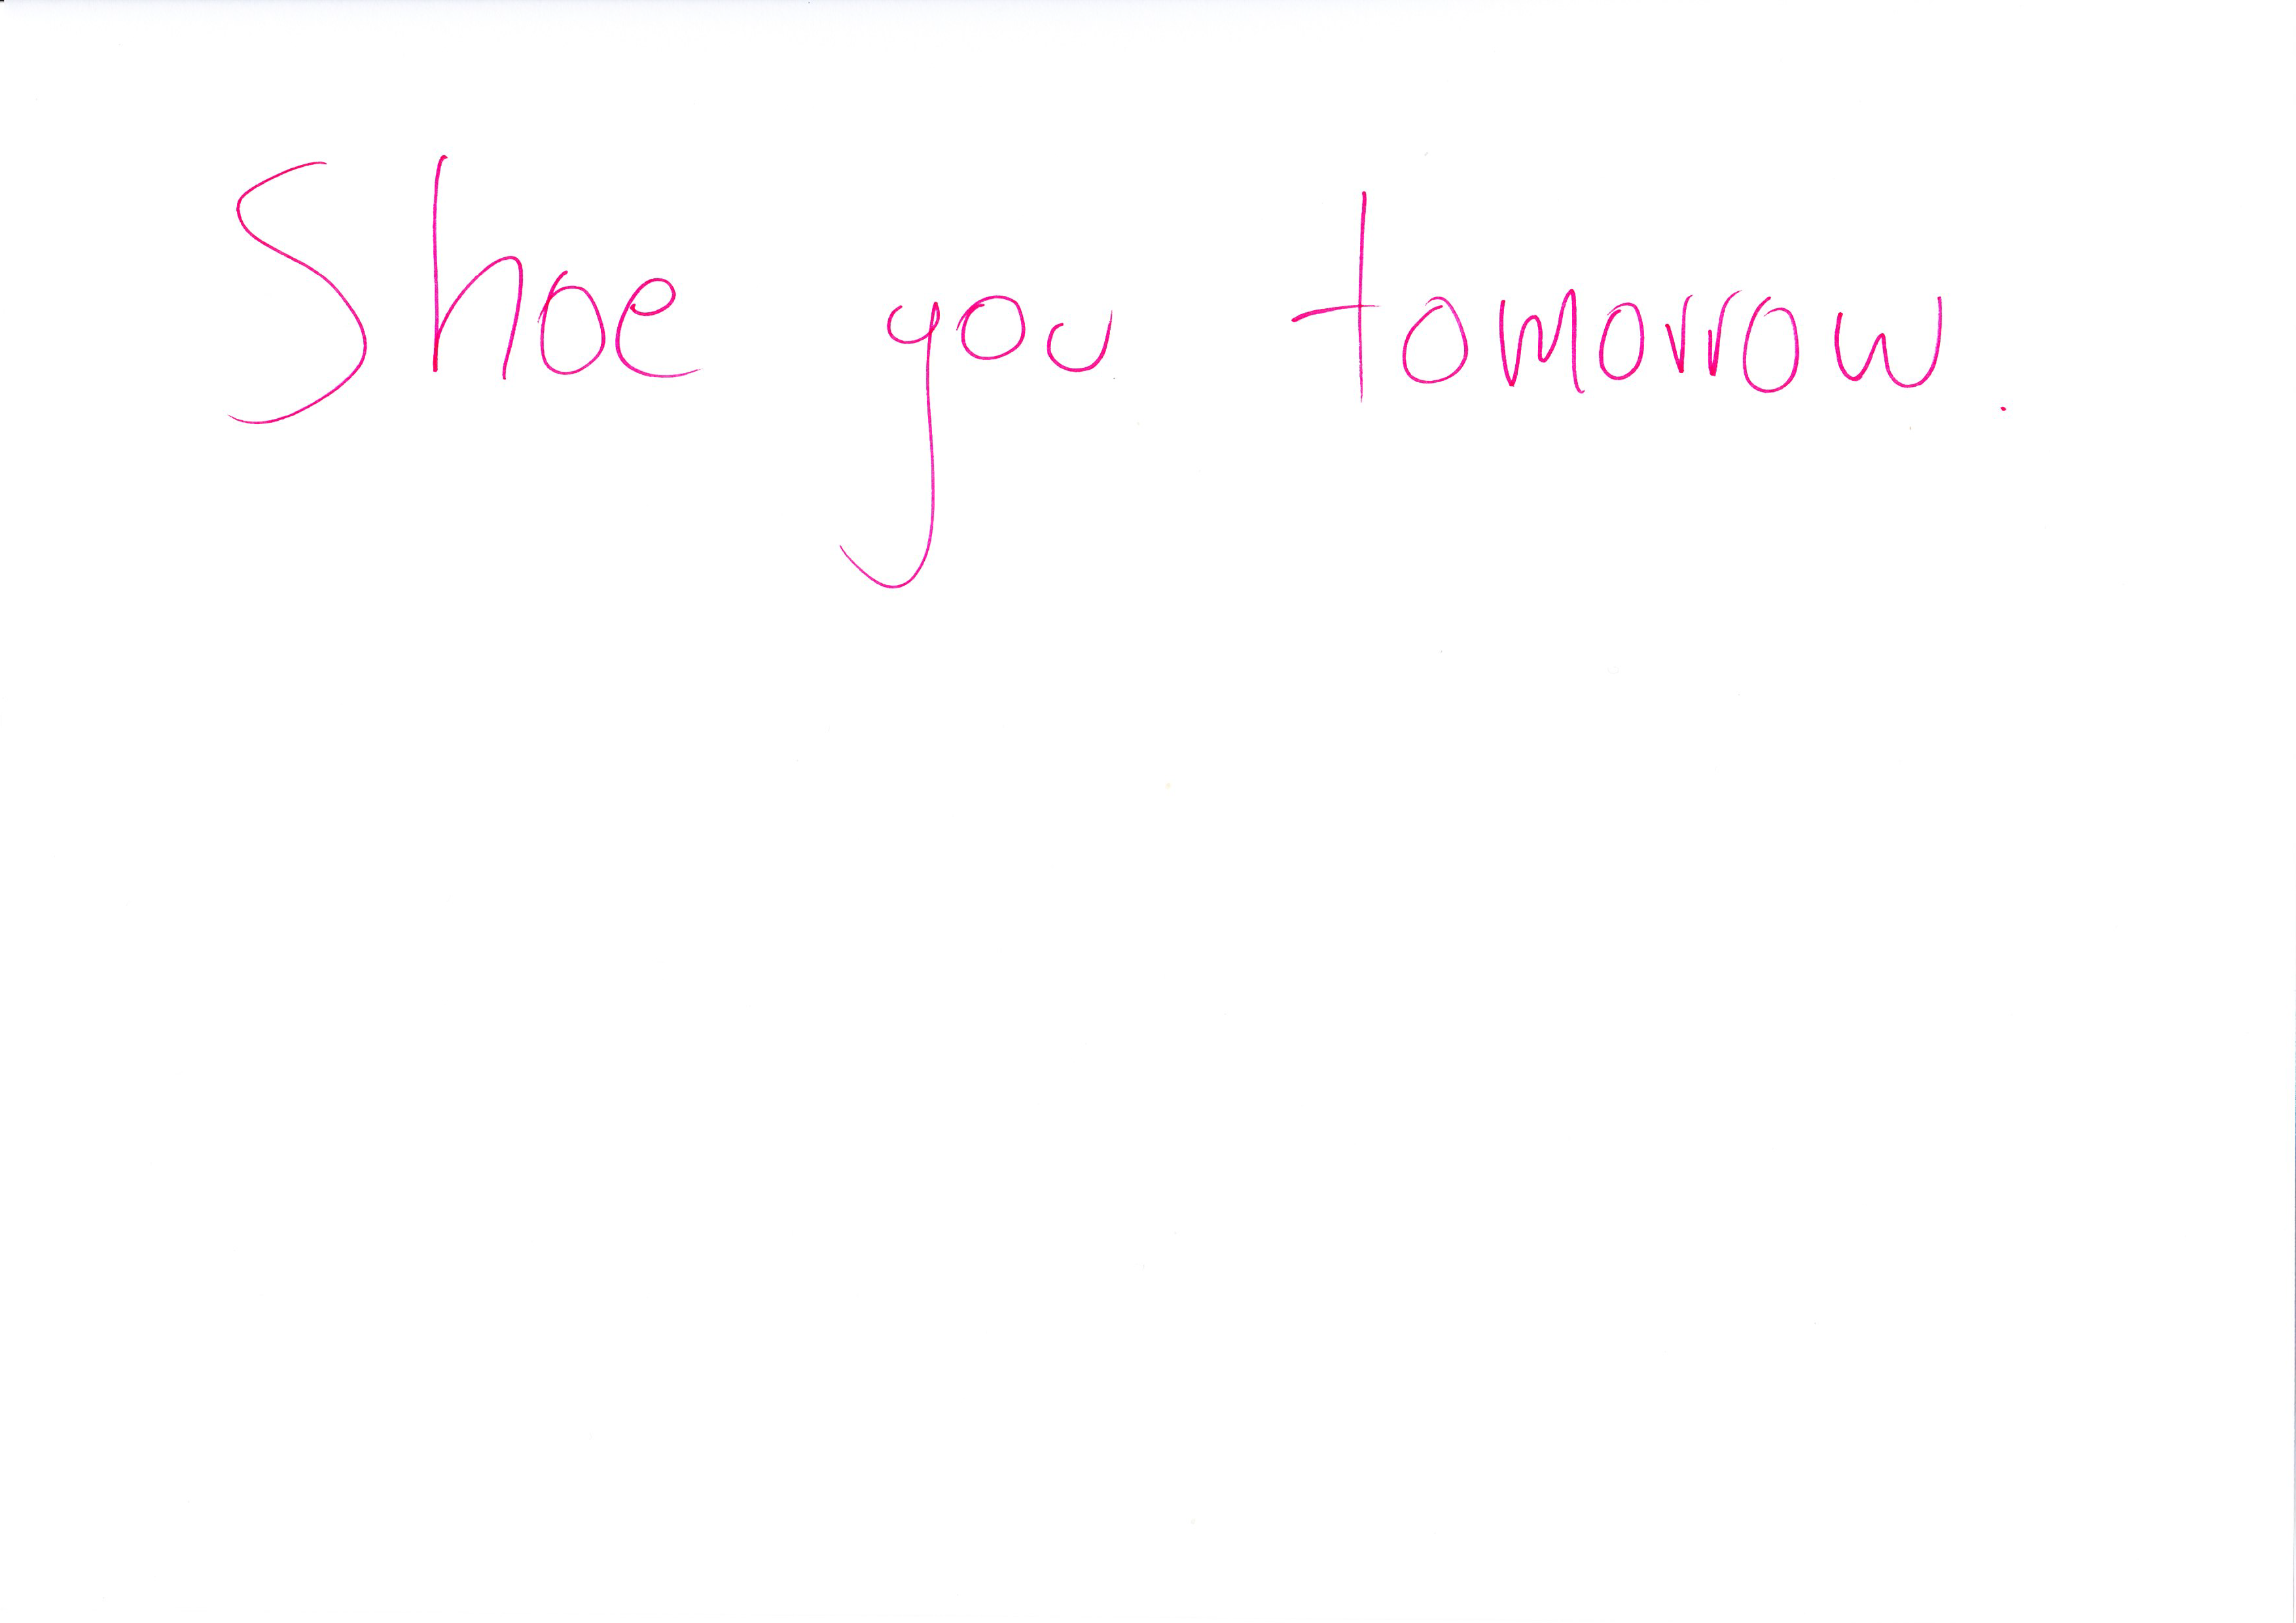 Shoe you tomorrow.